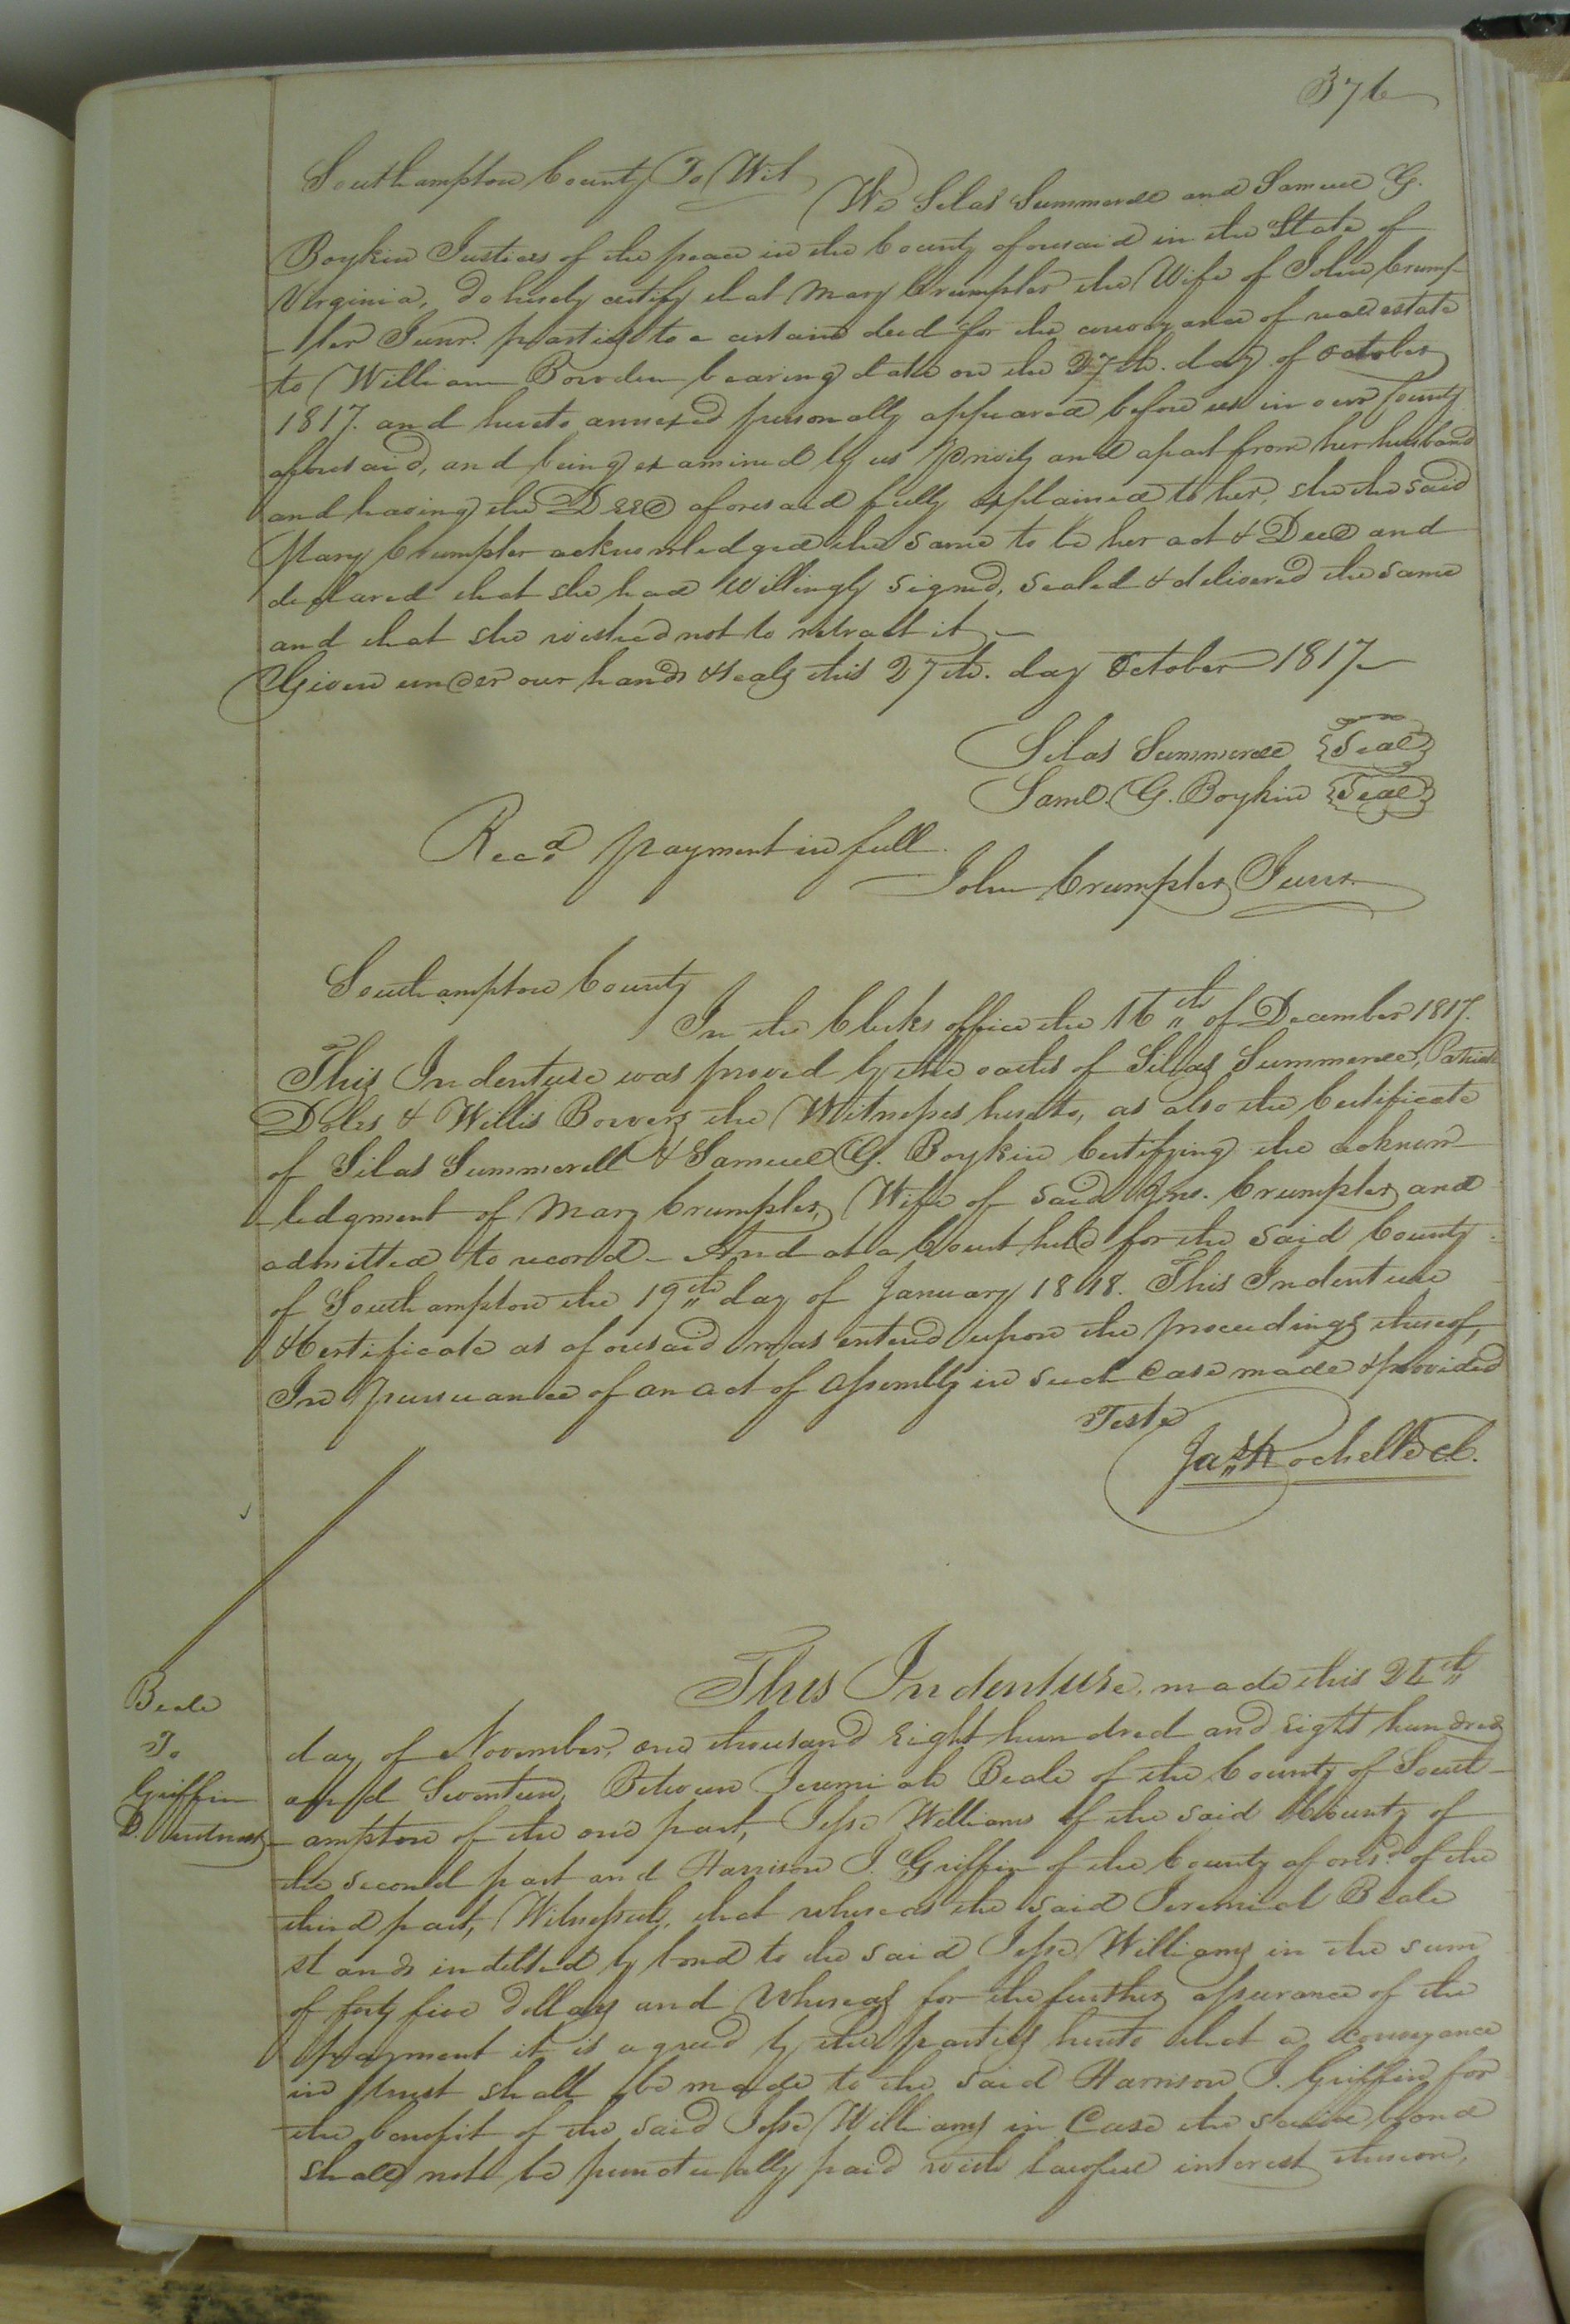 376
Southampton County To Wit
We Silas Summerell and Samuel G.
Boykin Justices of the peace in the County aforesaid in the State of
Virginia, do hereby certify that Mary Crumpler the Wife of John Crump-
-ler Junr. parties to a certain deed for the conveyance of real estate
to William Bowden bearing date on the 27th. day of October
1817. and hereto annexed personally appeared before us in our County
aforesaid, and being examined by us privily and apart from her husband
and having the Deed aforesaid fully explained to her, she the said
Mary Crumpler acknowledged the same to be her act & Deed and
declared that she had willingly signed, sealed & delivered the same
and that she wished not to retract it –
Given under our hands & seals this 27th. day October 1817
Silas Summerell {Seal}
Saml. G. Boykin {Seal}
Recd. payment in full.
John Crumpler Junr.
Southampton County
In the Clerks office the 16th of December 1817.
This Indenture was proved by the oaths of Silas Summerell, Patrick
Doles & Willis Bowers the Witnesses hereto, as also the Certificate
of Silas Summerell & Samuel G. Boykin Certifying the acknow
-ledgment of Mary Crumpler, Wife of said Jno. Crumpler and
admitted to record – And at a Court held for the said County
of Southampton the 19th day of January 1818. This Indenture
& Certificate as aforesaid was entered upon the proceedings thereof,
In pursuance of an act of Assembly in such Case made & provided
Teste
Jas. Rochelle C.C.
This Indenture, made this 24th
Beale
To
Griffin
D. Intrust
day of November, one thousand eight hundred and eight hundred
and Seventeen, Between Jeremiah Beale of the County of South-
-ampton of the one part, Jesse Williams of the said County of
the second part and Harrison J. Griffin of the County aforesd. of the
third part, Witnesseth, that whereas the said Jeremiah Beale
stands indebted by bond to the said Jesse Williams in the sum
of forty five dollars and Whereas for the further assurance of the
payment it is agreed by the parties hereto that a conveyance
in trust shall be made to the said Harrison J. Griffin for
the benefit of the said Jesse Williams in Case the said bond
shall not be punctually paid with lawful interest thereon,